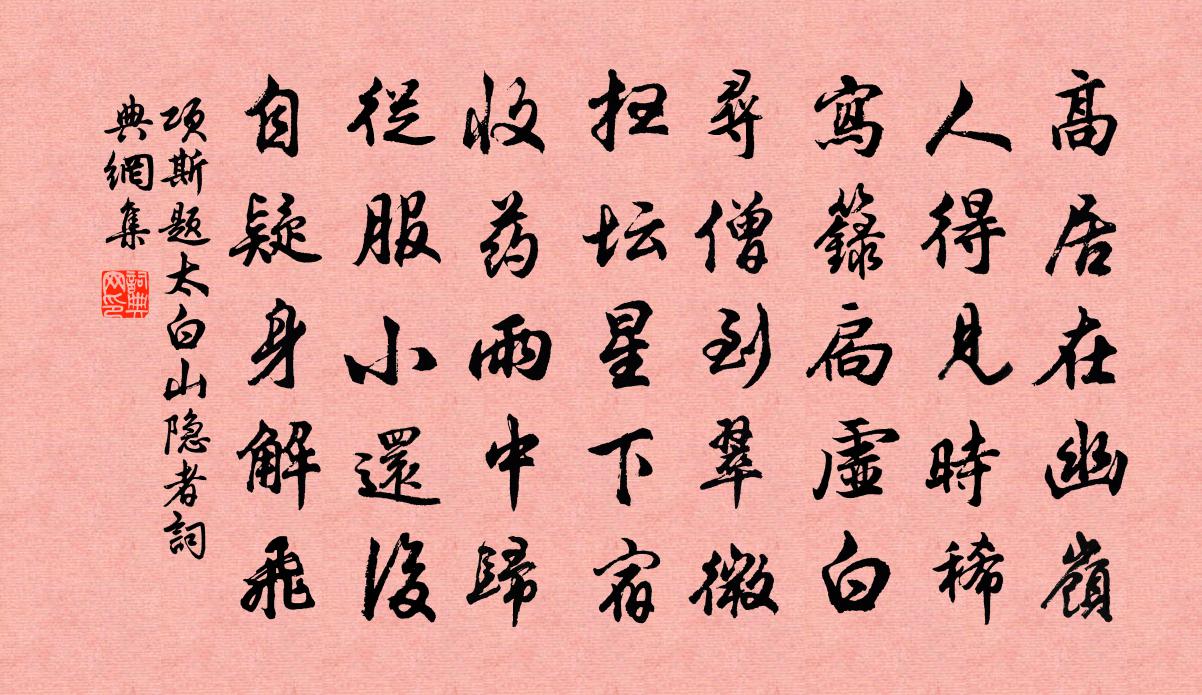 高居在幽嶺
人得見時稀
寫籙扃虛白
尋僧到翠微
扫坛星下宿
收药雨中歸
從服小還後
自疑身解飛
项斯题太白山隐者詞
典網集
詞典網印